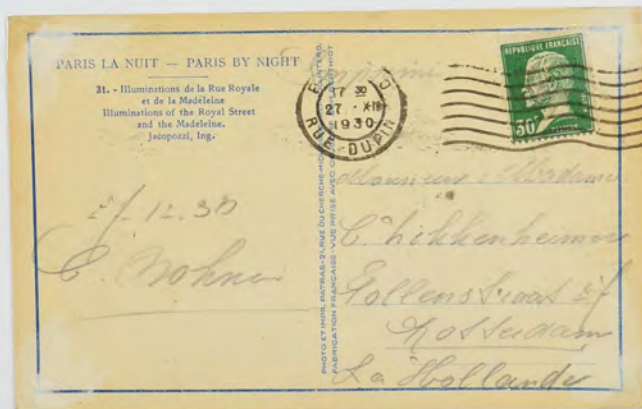 PARIS LA NUIT — PARIS BY NIGHT
31. - Illuminations de la Rue Royale
et de la Madeleine
Illuminations of the Royal Street
and the Madeleine.
Jacopozzi, Ing.
27.12.30
PHOTO ET IMPR. PATRAS - 21, RUE DU CHERCHE-MIDI
FABRICATION FRANÇAISE - VUE PRISE AVEC
17 30
27 - XII
1930
RUE DUPIN
REPUBLIQUE FRANÇAISE
30c
Monsieur & Madame
Rotterdam
La Hollande